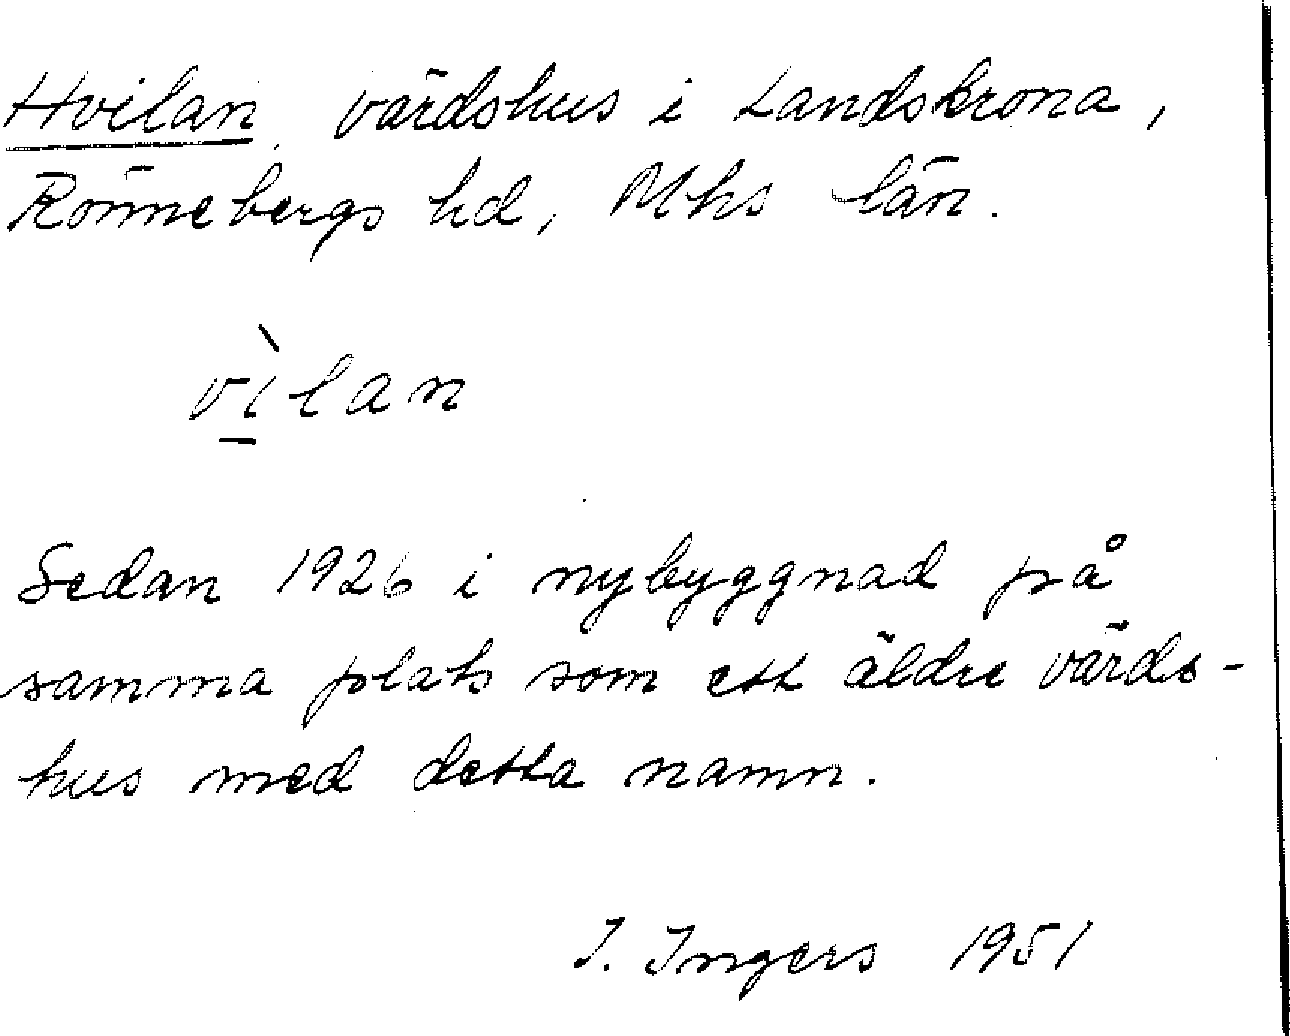 Hvilan, värdshus i Landskrona,
Rönnebergs hd, Mhs län.
vìlan
Sedan 1926 i nybyggnad på
samma plats som ett äldre värds-
hus med detta namn.
I. Ingers 1951